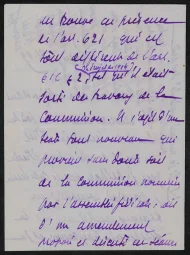 se trouve en présence
de l'art. 621, qui est
tout différent de l'art.
616 2, tel qu'il était
sorti des travaux de la
Commission. Il s'agit d'un
texte tout nouveau qui
provient sans doute soit
de la Commission nommée
par l'assemblée fédérale, soit
d'un amendement
proposé et discuté en séance